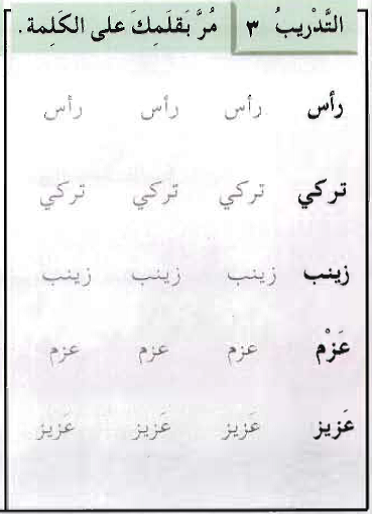 التَّدْريبُ ٣ مُرَّ بَقلَمِكَ على الكَلِمة.
رأس رأس رأس رأس
تركي تركي تركي تركي
زينب زينب زينب زينب
عَزْم عزم عزم عزم
عَزيز عَزيز عَزيز عَزيز